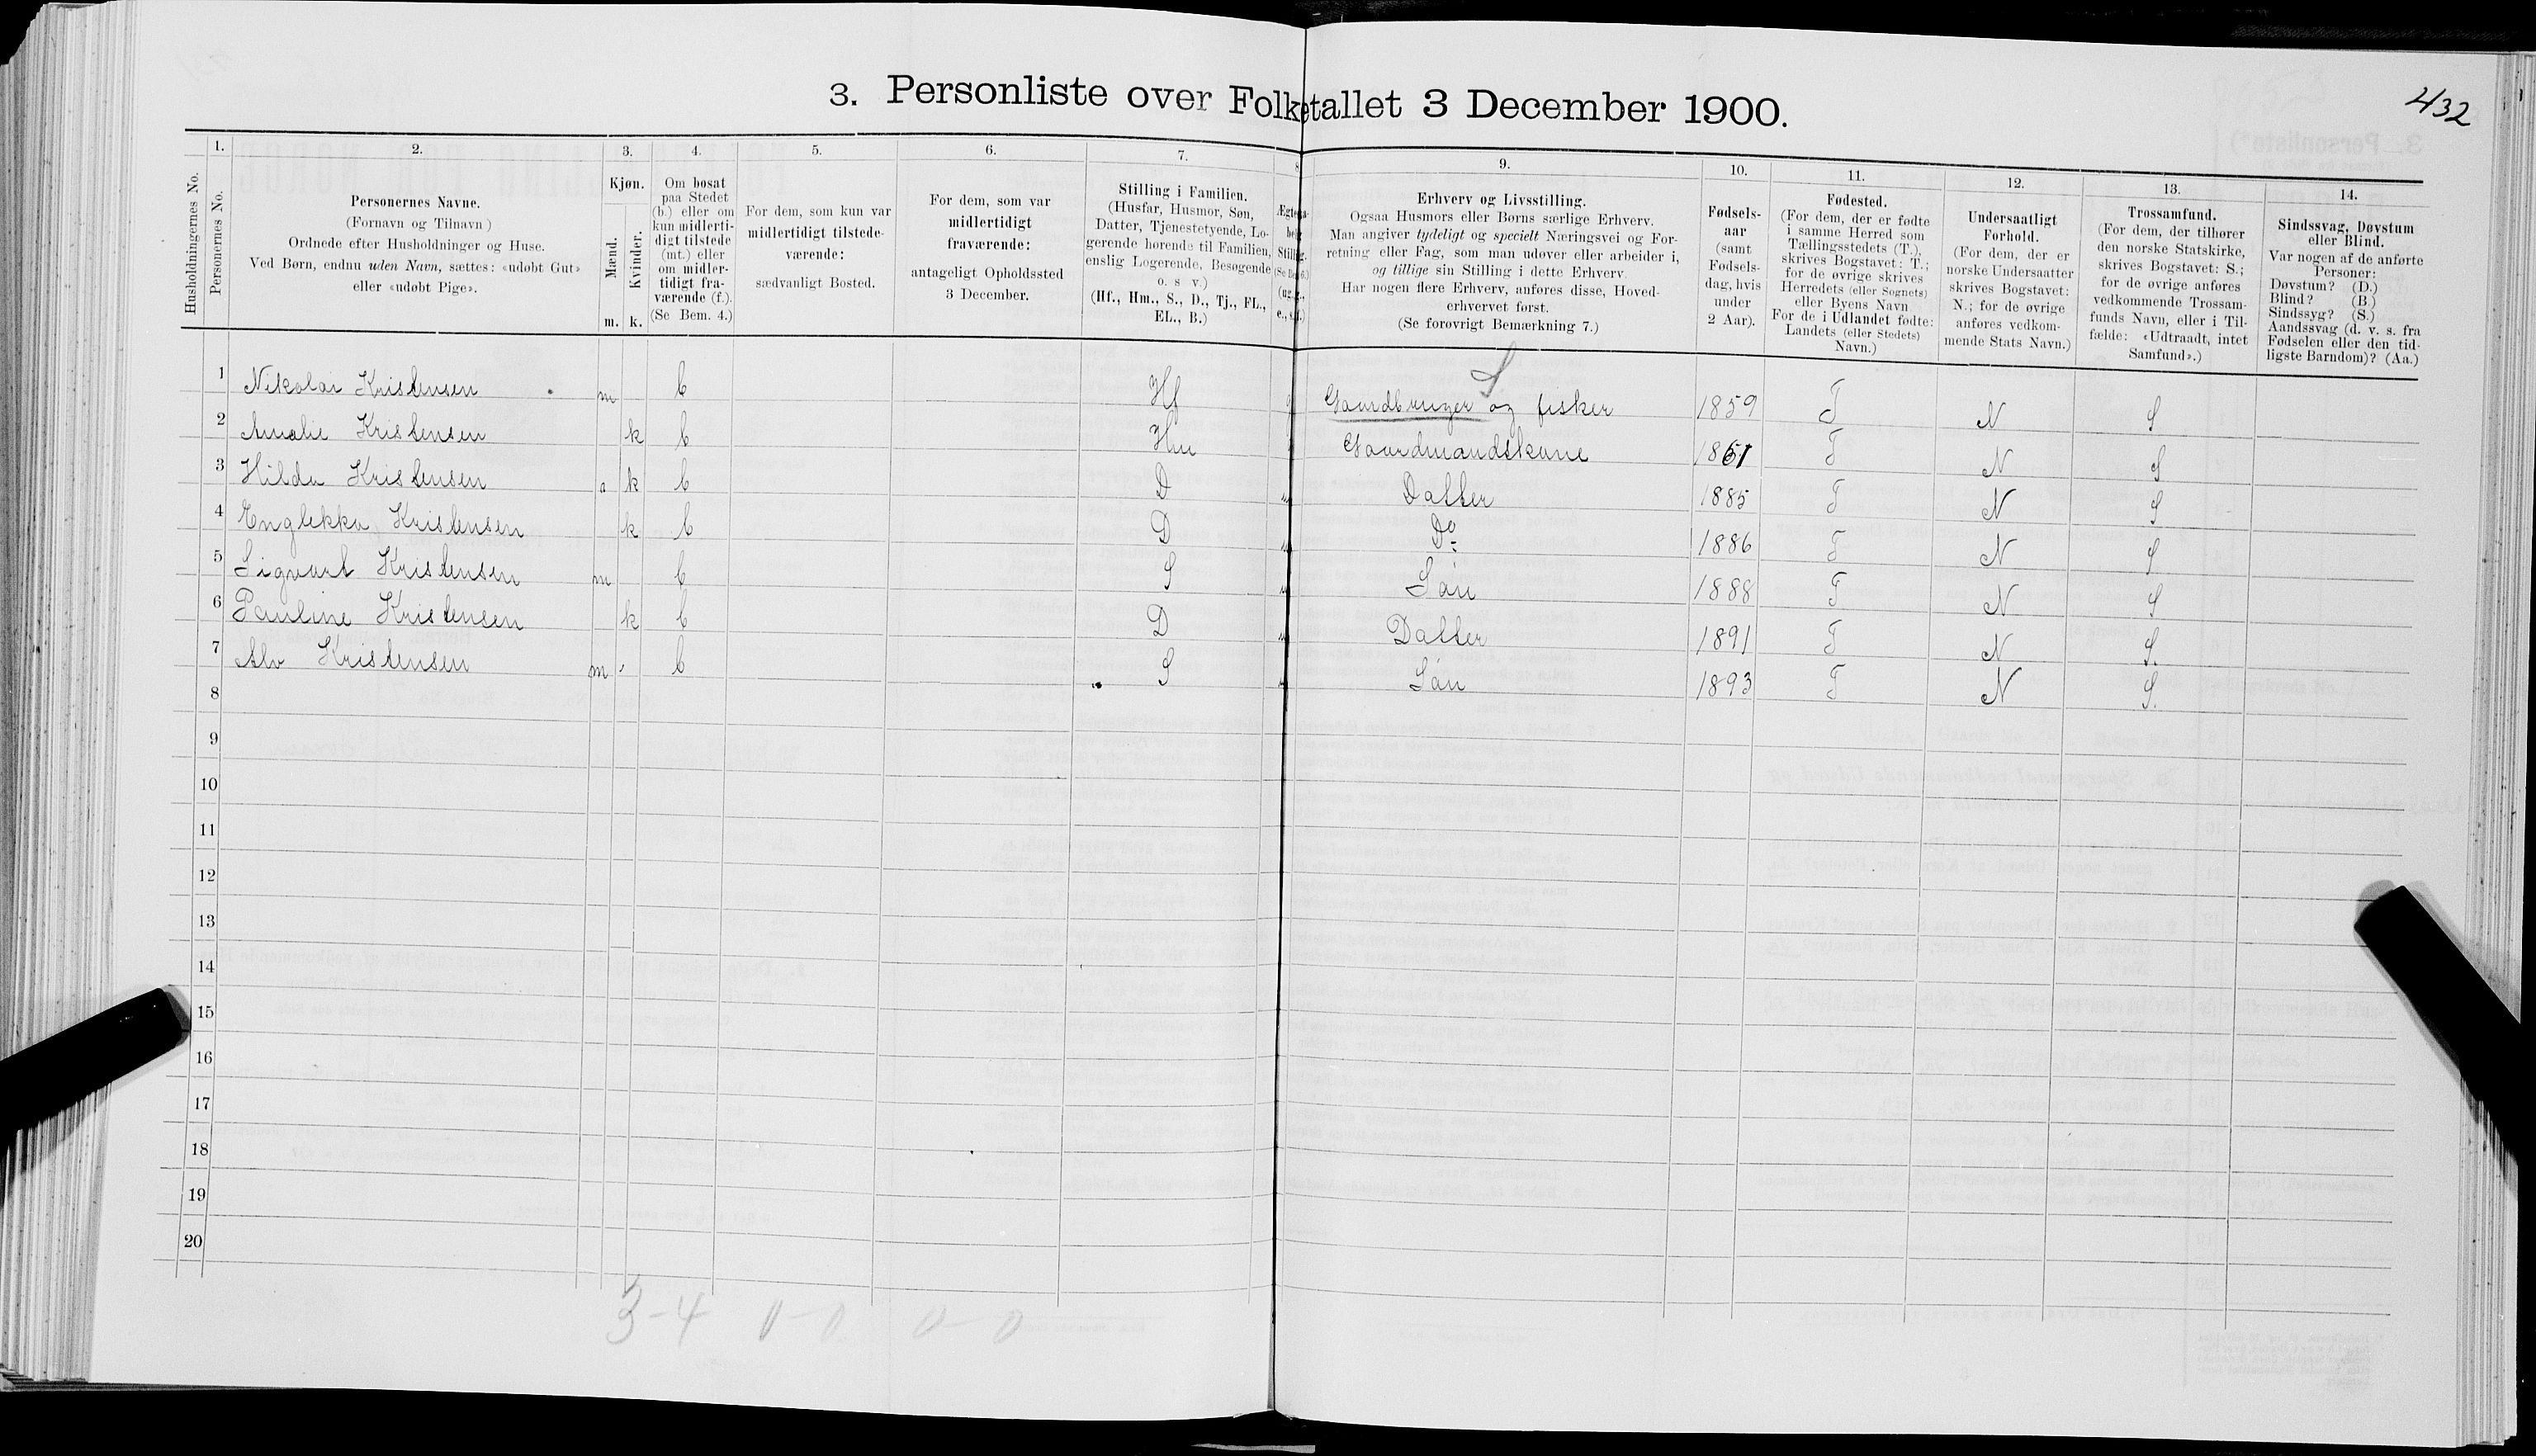 432
3. Personliste over Folketallet 3 December 1900.
1. 2. 3. 4. 5. 6. 7. 8 9. 10. 11. 12. 13. 14.
Husholdningernes No.
Personernes No.
Personernes Navne.
(Fornavn og Tilnavn)
Ordnede efter Husholdninger og Huse.
Ved Børn, endnu uden Navn, sættes: «udøbt Gut»
eller «udøbt Pige».
Kjøn.
Mænd.
Kvinder.
m. k.
Om bosat
paa Stedet
(b.) eller om
kun midlerti-
digt tilstede
(mt.) eller
om midler-
tidigt fra-
værende (f.).
(Se Bem. 4.)
For dem, som kun var
midlertidigt tilstede-
værende:
sædvanligt Bosted.
For dem, som var
midlertidigt
fraværende:
antageligt Opholdssted
3 December.
Stilling i Familien.
(Husfar, Husmor, Søn,
Datter, Tjenestetyende, Lo-
gerende hørende til Familien,
enslig Logerende, Besøgende
o. s v.)
(Hf., Hm., S., D., Tj., FL.,
EL., B.)
Erhverv og Livsstilling.
Ogsaa Husmors eller Børns særlige Erhverv.
Man angiver tydeligt og specielt Næringsvei og For-
retning eller Fag, som man udøver eller arbeider i,
og tillige sin Stilling i dette Erhverv.
Har nogen flere Erhverv, anføres disse, Hoved-
erhvervet først.
(Se forøvrigt Bemærkning 7.)
Fødsels-
aar
(samt
Fødsels-
dag, hvis
under
2 Aar).
Fødested.
(For dem, der er fødte
i samme Herred som
Tællingsstedets (T.),
skrives Bogstavet: T.;
for de øvrige skrives
Herredets (eller Sognets)
eller Byens Navn
For de i Udlandet fødte:
Landets (eller Stedets)
Navn.)
Undersaatligt
Forhold.
(For dem, der er
norske Undersaatter
skrives Bogstavet:
N.; for de øvrige
anføres vedkom-
mende Stats Navn.)
Trossamfund.
(For dem, der tilhører
den norske Statskirke,
skrives Bogstavet: S.;
for de øvrige anføres
vedkommende Trossam-
funds Navn, eller i Til-
fælde: «Udtraadt, intet
Samfund».)
Sindssvag, Døvstum
eller Blind.
Var nogen af de anførte
Personer:
Døvstum? (D.)
Blind? (B.)
Sindssyg? (S.)
Aandssvag (d. v. s. fra
Fødselen eller den tid-
ligste Barndom)? (Aa.)
S
1 Nikolai Kristensen m b Hf g Gaardbruger og fisker 1859 T N S
2 Amalie Kristensen k b Hm Gaardmandskone 1861 T N S
3 Hilda Kristensen k b D Datter 1885 T N S
4 Englekka Kristensen k b D Do 1886 T N S
5 Sigvart Kristensen m b S Søn 1888 T N S
6 Pauline Kristensen k b D Datter 1891 T N S.
7 Alv Kristensen m b S Søn 1893 T N S.
8
9
10
11
12
13
14
15
16
17
18
19
20
3-4 0-0 0-0